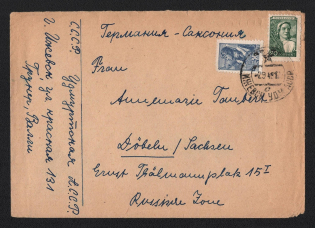 Германия-Саксония
Frau
Annemarie
Döbeln / Sachsen
Ernst Thälmannplatz 15 I
Russische Zone
СССР. Удмуртская АССР.
г. Ижевск ул. красная 131